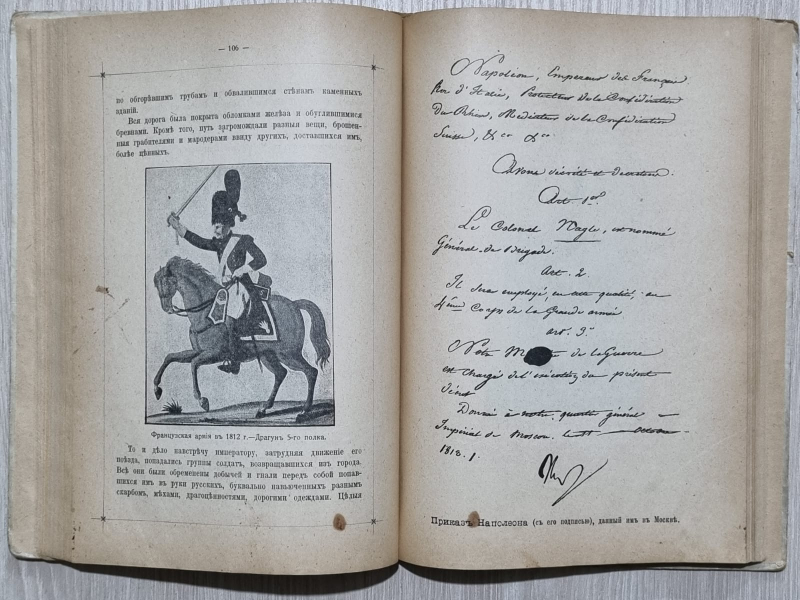 — 106 —
по обгорѣвшимъ трубамъ и обвалившимся стѣнамъ каменныхъ
зданій.
Вся дорога была покрыта обломками желѣза и обуглившимися
бревнами. Кромѣ того, путь загромождали разныя вещи, брошен-
ныя грабителями и мародерами ввиду другихъ, доставшихся имъ,
болѣе цѣнныхъ.
Французская армія въ 1812 г.—Драгунъ 5-го полка.
То и дѣло навстрѣчу императору, затрудняя движеніе его
поѣзда, попадались группы солдатъ, возвращавшихся изъ города.
Всѣ они были обременены добычей и гнали передъ собой попав-
шихся имъ въ руки русскихъ, буквально навьюченныхъ разнымъ
скарбомъ, мѣхами, драгоцѣнностями, дорогими одеждами. Цѣлыя
Napoléon, Empereur des Français
Roi d'Italie, Protecteur de la Confédération
Du Rhin, Médiateur de la Confédération
Suisse, &ca &ca
Avons décrété et décretons
Art 1er
Le Colonel Nagle, est nommé
Général de Brigade.
Art. 2.
Il sera employé, en cette qualité, au
4ème Corps de la Grande armée
art. 3.
Notre de la Guerre
est chargé de l'exécution du présent
décret
Donné à notre quartier général
Impérial de Moscou octobre
181 .
Приказъ Наполеона (съ его подписью), данный имъ въ Москвѣ.